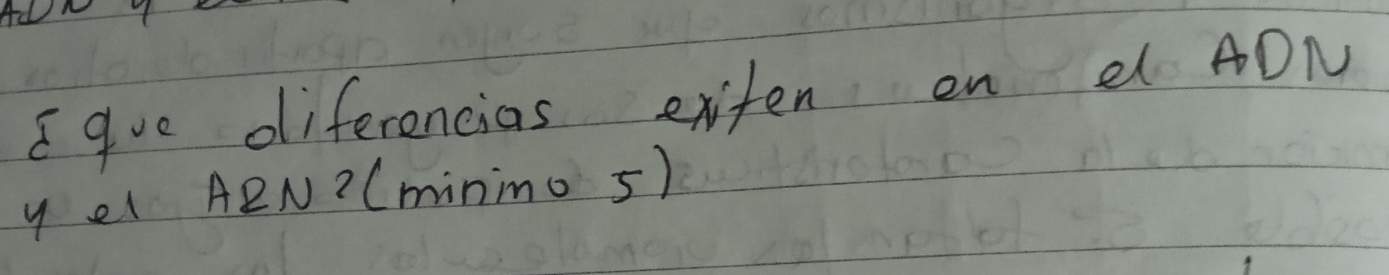 ADN y
¿que diferencias exiten en el ADN
y el ARN?(minimo 5)